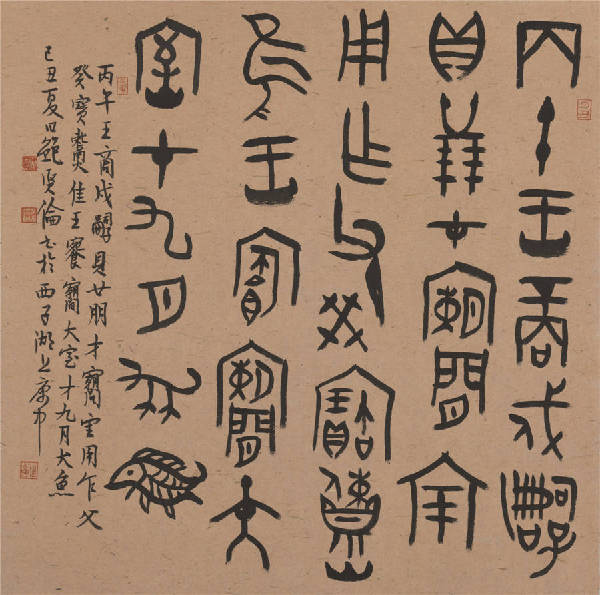 丙午王商戍嗣
貝廿朋才
用乍父癸寶
隹王大
室才九月犬魚
丙午王商戍嗣貝廿朋才用乍父
癸寶隹王大室才九月犬魚
己丑夏日鮑賢倫書於西子湖上